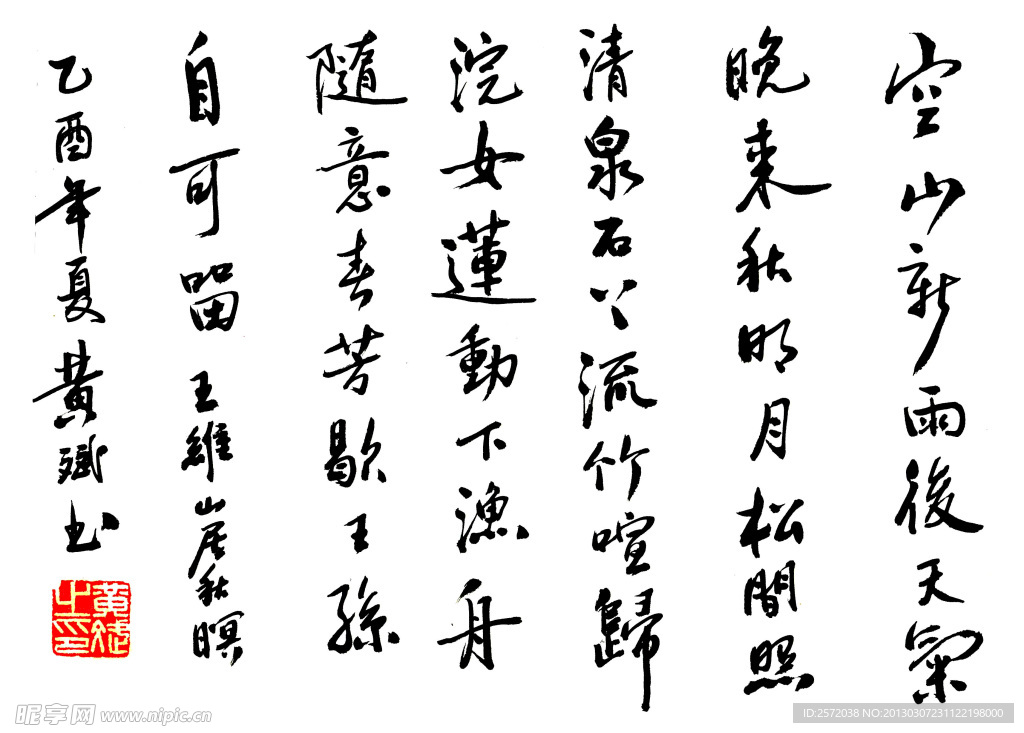 空山新雨後天氣
晚来秋明月松間照
清泉石上流竹喧歸
浣女蓮動下漁舟
隨意春芳歇王孫
自可留 王維山居秋暝
乙酉年夏黃斌书
昵享网 www.nipic.cn
ID:2572038 NO:20130307231122198000